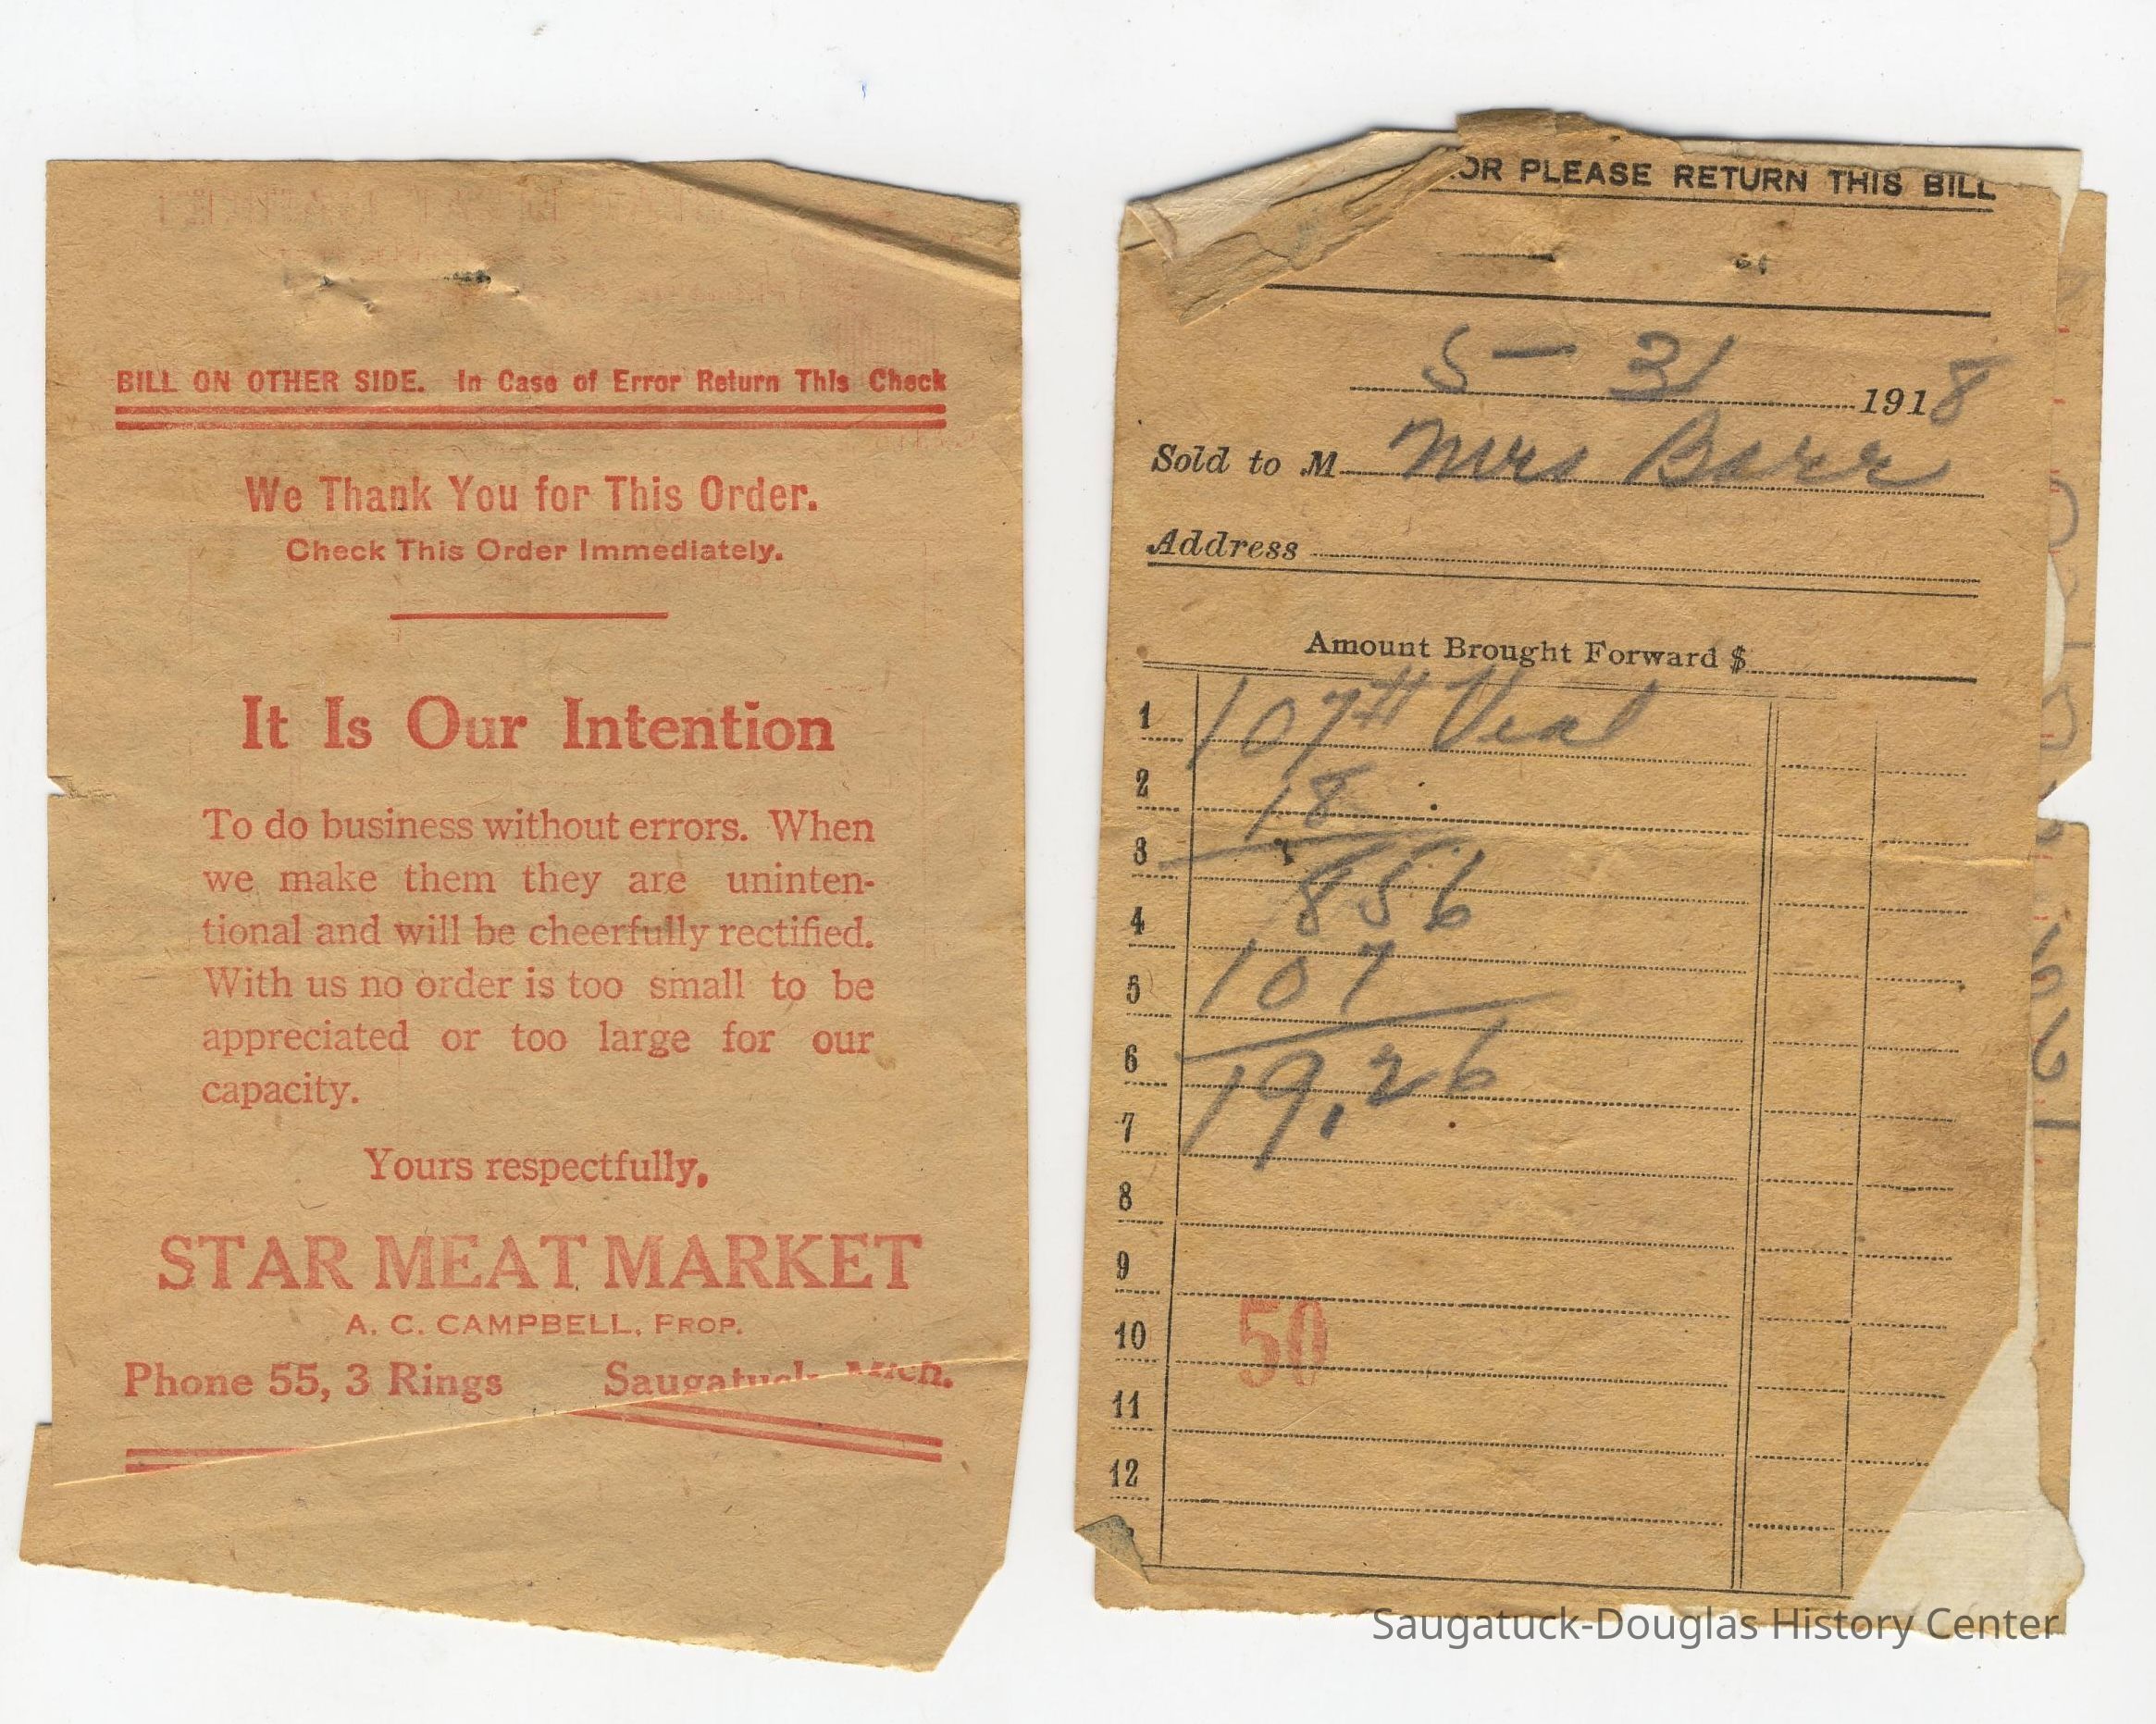 BILL ON OTHER SIDE. In Case of Error Return This Check
We Thank You for This Order.
Check This Order Immediately.
It Is Our Intention
To do business without errors. When
we make them they are uninten-
tional and will be cheerfully rectified.
With us no order is too small to be
appreciated or too large for our
capacity.
Yours respectfully,
STAR MEAT MARKET
A. C. CAMPBELL, PROP.
Phone 55, 3 Rings Saugatuck, Mich.
OR PLEASE RETURN THIS BILL
5 - 31 1918
Sold to M Mrs
Address
Amount Brought Forward $
1 107 # Veal
2 18
3
4 856
5 107
6 19.26
7
8
9
10 50
11
12
Saugatuck-Douglas History Center